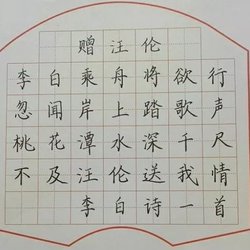 赠汪伦
李白乘舟将欲行
忽闻岸上踏歌声
桃花潭水深千尺
不及汪伦送我情
李白诗一首